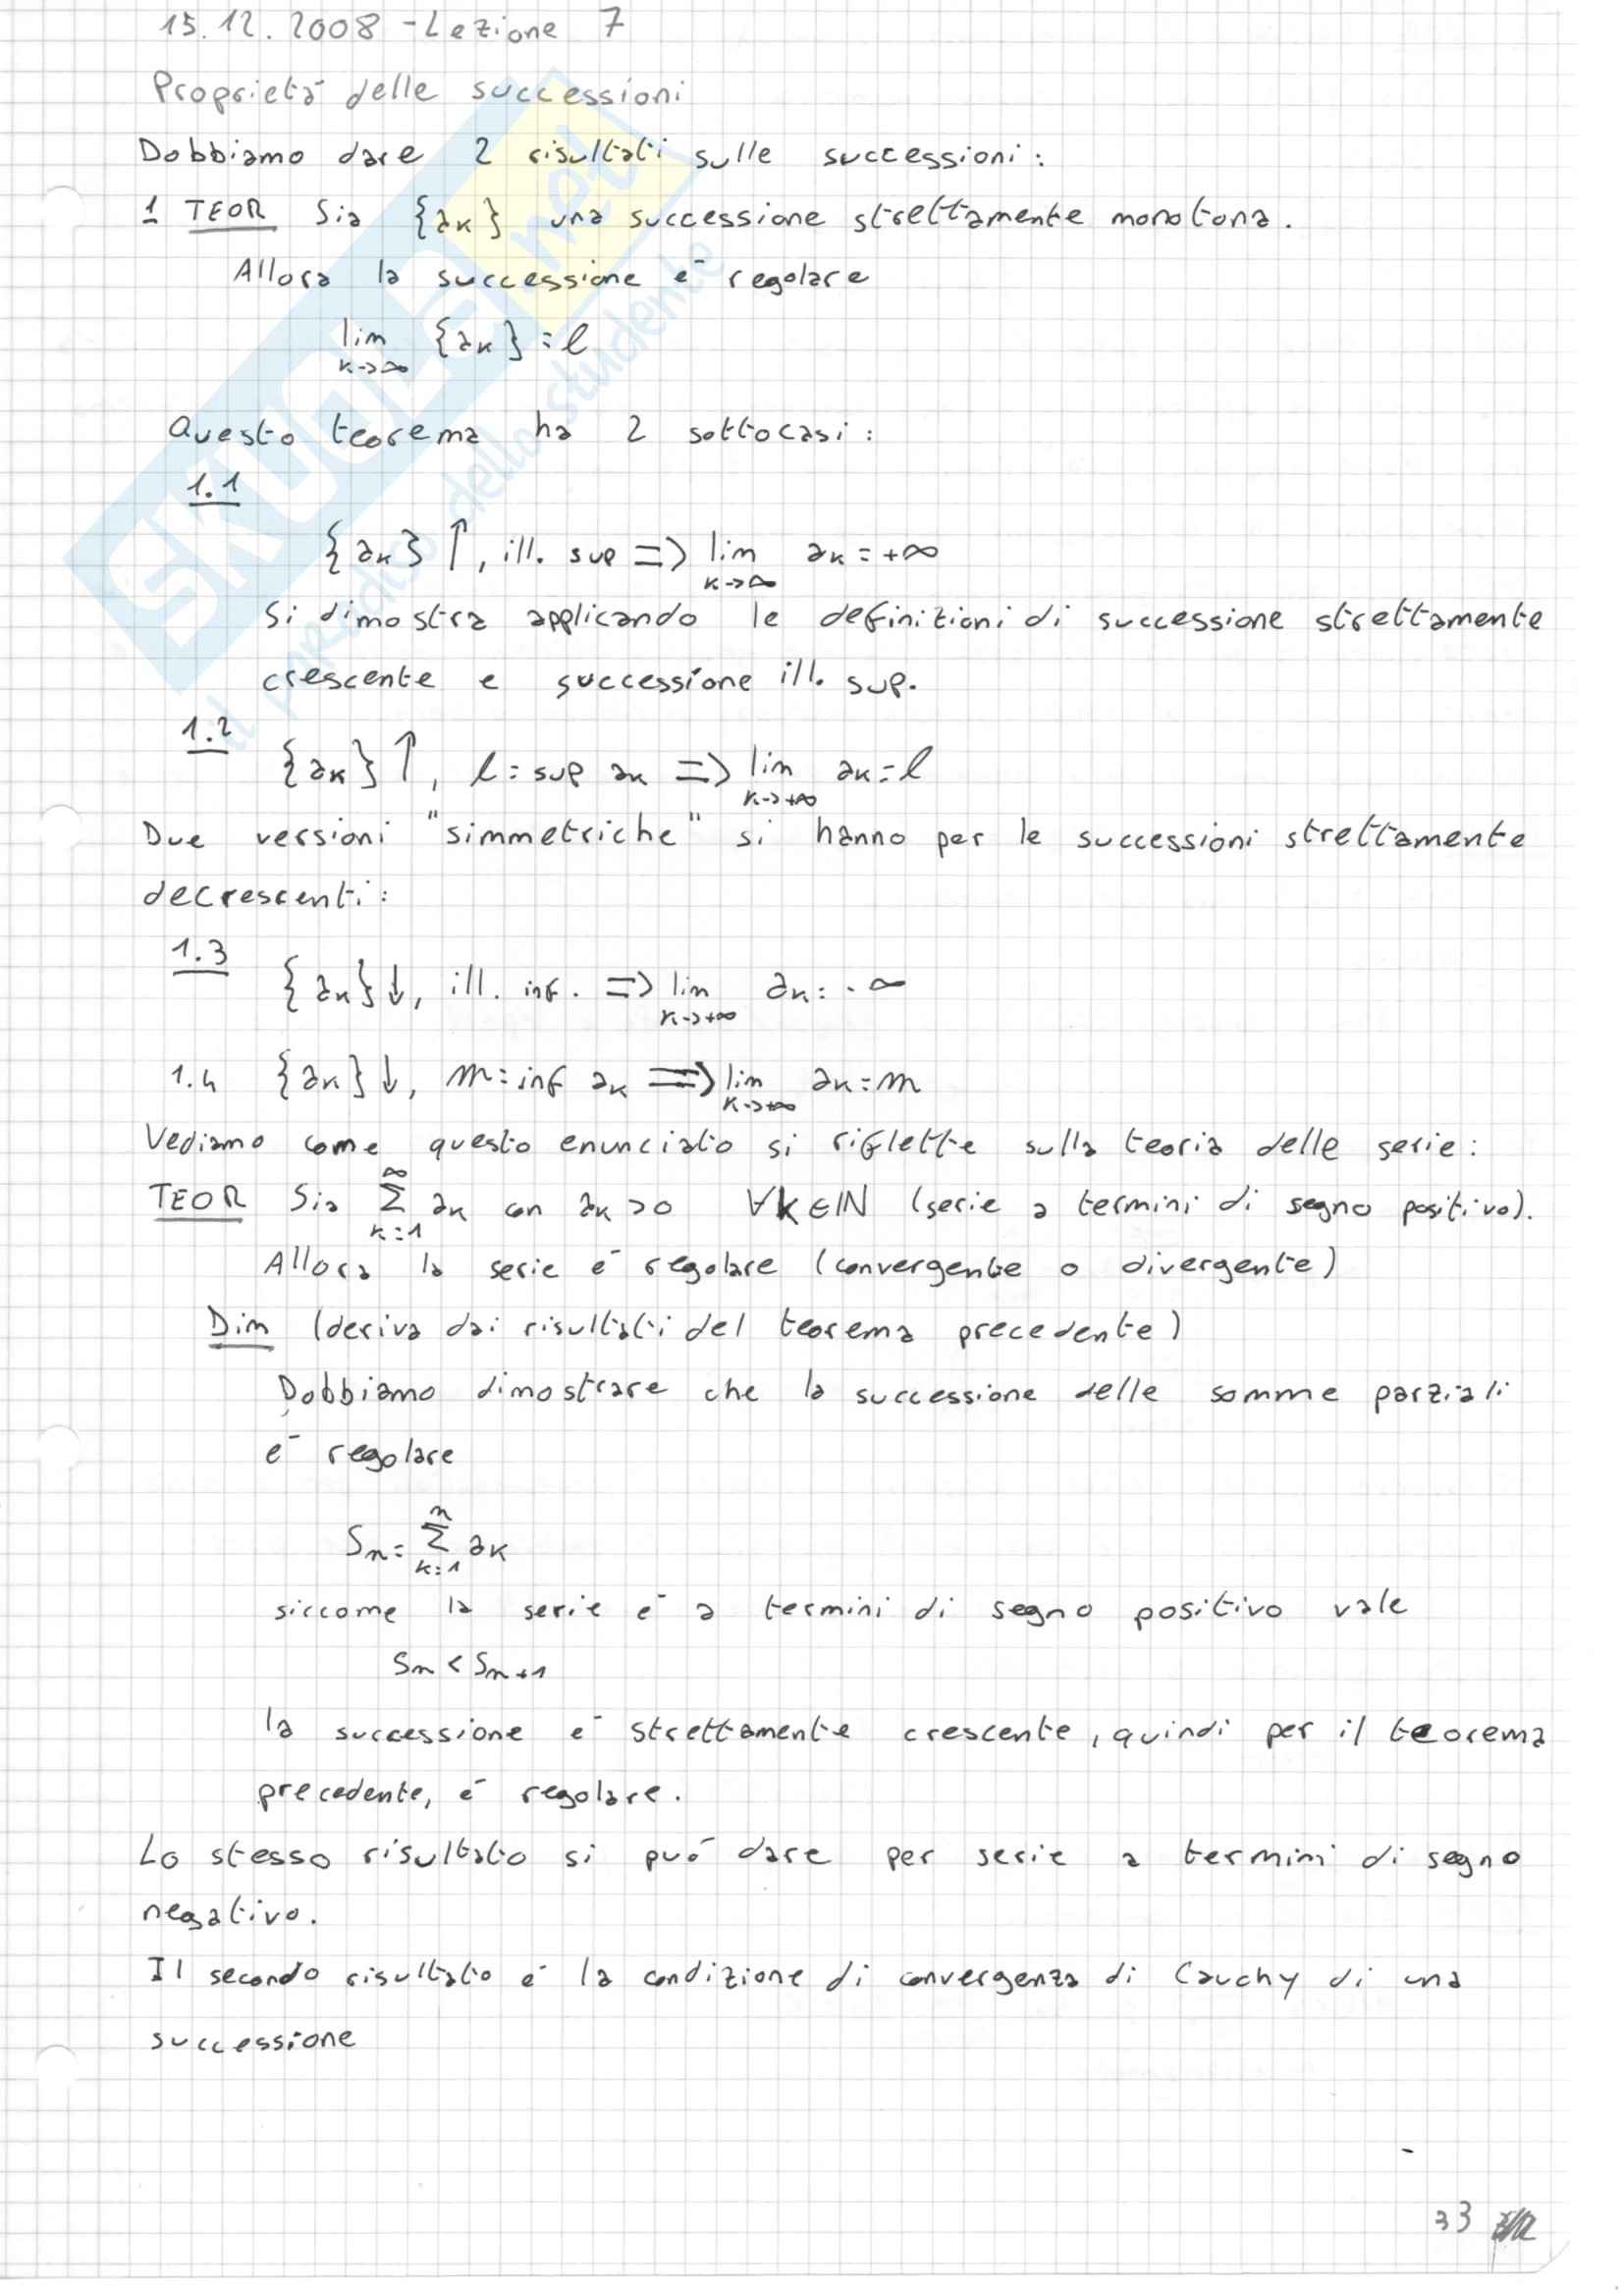 15.12.2008 - Lezione 7
Proprietà delle successioni
Dobbiamo dare 2 risultati sulle successioni:
1 TEOR Sia {ak} una successione strettamente monotona.
Allora la successione è regolare
lim {ak} = l
k->∞
Questo teorema ha 2 sottocasi:
1.1
{ak}↑, ill. sup => lim ak = +∞
k->∞
Si dimostra applicando le definizioni di successione strettamente
crescente e successione ill. sup.
1.2
{ak}↑, l = sup ak => lim ak = l
k->+∞
Due versioni "simmetriche" si hanno per le successioni strettamente
decrescenti:
1.3
{ak}↓, ill. inf. => lim ak = -∞
k->+∞
1.4 {ak}↓, m = inf ak => lim ak = m
k->+∞
Vediamo come questo enunciato si riflette sulla teoria delle serie:
TEOR Sia ∑ ak con ak > 0 ∀k∈ℕ (serie a termini di segno positivo).
∞
k=1
Allora la serie è regolare (convergente o divergente)
Dim (deriva dai risultati del teorema precedente)
Dobbiamo dimostrare che la successione delle somme parziali
è regolare
n
Sn = ∑ ak
k=1
siccome la serie è a termini di segno positivo vale
Sn < Sn+1
la successione è strettamente crescente, quindi per il teorema
precedente, è regolare.
Lo stesso risultato si può dare per serie a termini di segno
negativo.
Il secondo risultato è la condizione di convergenza di Cauchy di una
successione
33
SKUOLA.net
il paradiso dello studente